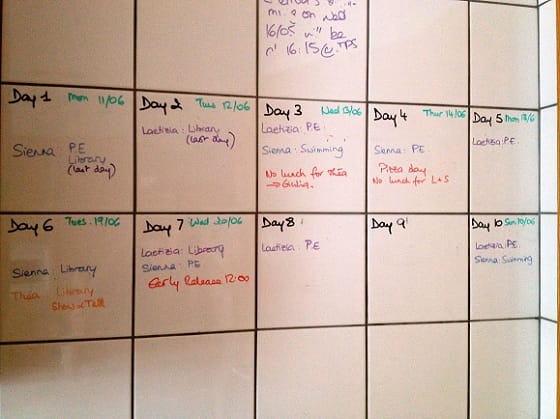 mi e on Wed
16/05 will be
16:15 @ TPS
Day 1 Mon 11/06
Sienna P.E
Library
(last day)
Day 2 Tue 12/06
Laetizia: Library
(last day)
Day 3 Wed 13/06
Laetizia: P.E.
Sienna: Swimming
No lunch for Thea
→ Giulia.
Day 4 Thur 14/06
Sienna: P.E.
Pizza day
No lunch for L+S
Day 5 Mon 18/6
Laetizia: P.E.
Day 6 Tues. 19/06
Sienna: Library
Thea: Library
Show & Tell
Day 7 Wed 20/06
Laetizia: Library
Sienna: P.E
Early Release 12:00
Day 8
Laetizia: P.E
Day 9
Day 10
Laetizia: P.E.
Sienna: Swimming